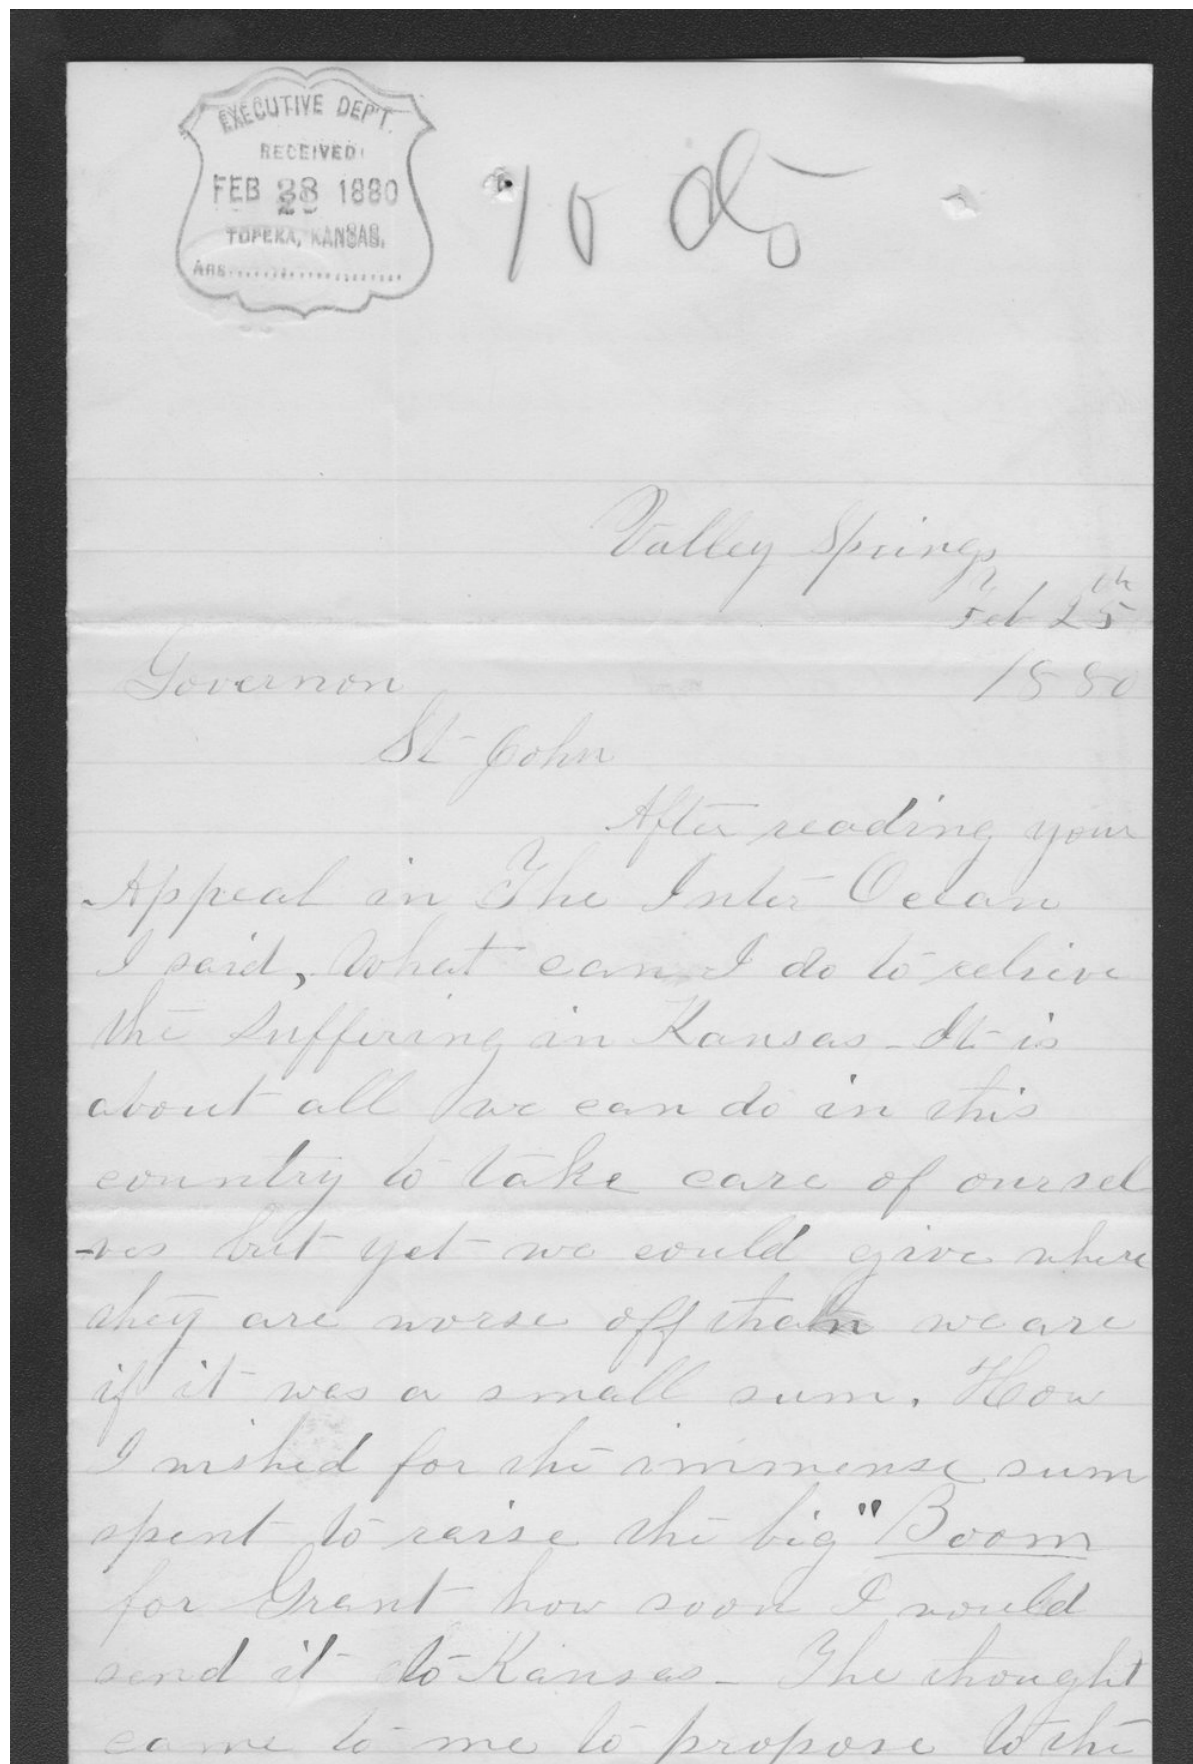 EXECUTIVE DEP'T.
RECEIVED
FEB 28 1880
TOPEKA, KANSAS.
ANS
Valley Springs
Feb 25th
1880
Governor
St John
After reading your
Appeal in The Inter Ocean
I said, What can I do to relieve
the suffering in Kansas - It is
about all we can do in this
country to take care of oursel
-ves but yet we could give where
they are worse off than we are
if it was a small sum. How
I wished for the immense sum
spent to raise the big "Boom
for Grant how soon I would
send it to Kansas - The thought
came to me to propose to the